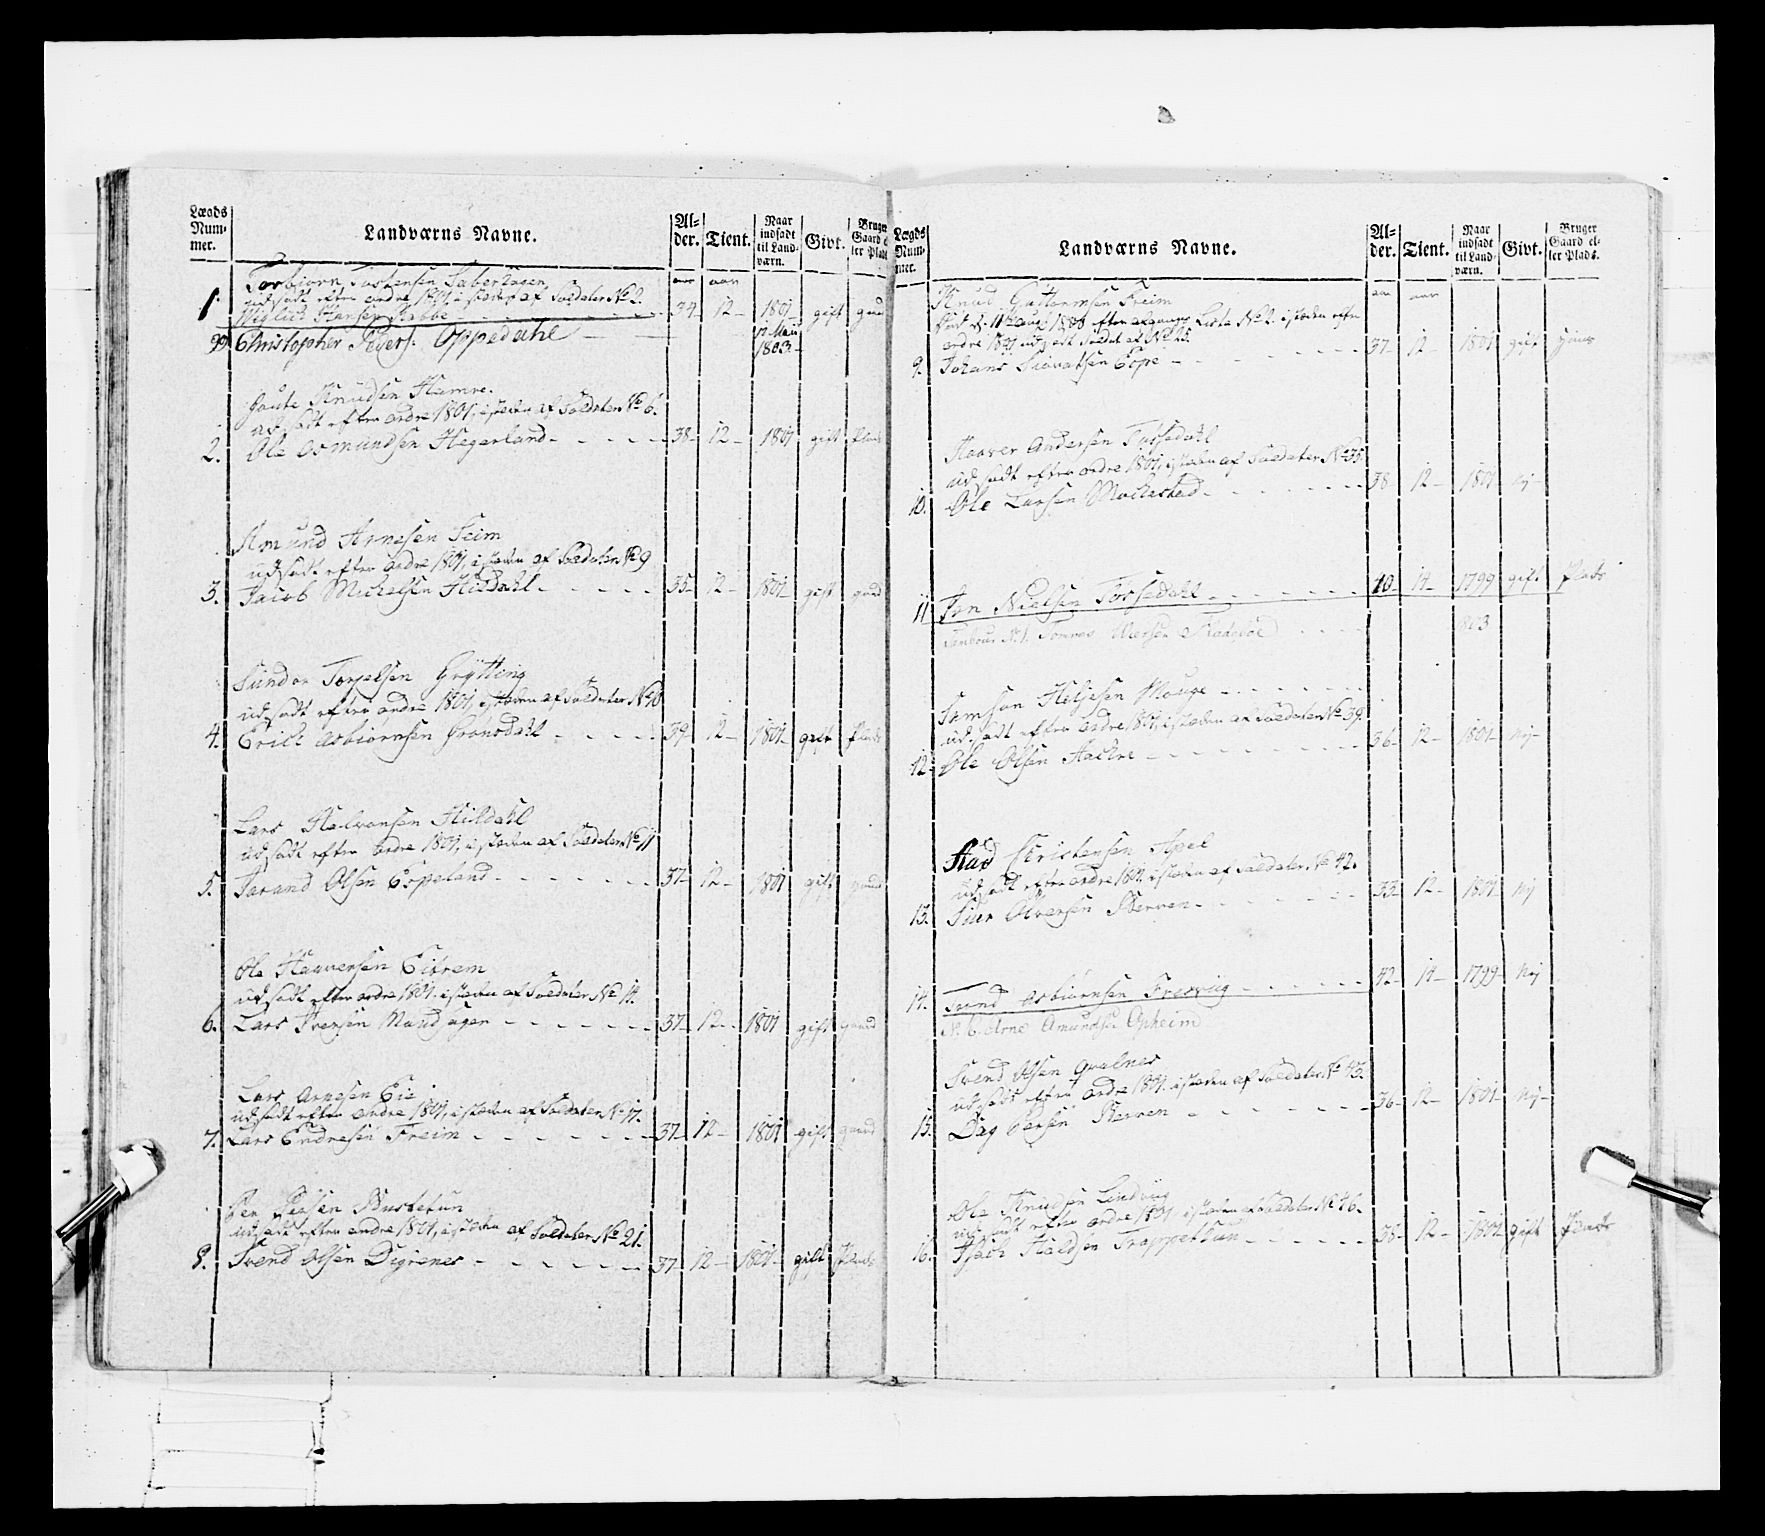 Lægds Num- mer.
Landværns Navne.
Al- der.
Tient.
Naar indsadt til Land- værn.
Givt.
Bruger Gaard e ler Plads
Torbiørn Tostensen
aar aar
udsadt efter ordre 1801 i stæden af Soldater No 2.
1. Hansen 34 12 - 1801 - gift gaard
Christopher Peders. Oppedahl 17 Mai 1803
Gaute Knudsen Hamre.
udsadt efter ordre 1801, i stæden af Soldater No 6.
2. Ole Osmundsen Hegerland - 38 - 12 - 1801 gift Plads
Amund Arnesen Seim
udsadt efter ordre 1801, i stæden af Soldater No 9
3. Jacob Michelsen Hildahl - 35 - 12 - 1801 gift gaard
Sundor Torjelsen Grytting
udsadt efter ordre 1801, i stæden af Soldater No 10
4. Erich Asbiørnsen Gronsdahl - 39 - 12 - 1801 gift Plads
Lars Halvorsen Hildahl
udsadt efter ordre 1801, i stæden af Soldater No 11
5. Olsen Espeland - 37 - 12 - 1801 gift gaard
Ole Haaversen Eitrem
udsadt efter ordre 1801. i stæden af Soldater No 14.
6. Lars Iversen Maudsagen - 37 - 12 - 1801 gift gaard
Lars Arnesen Eie
udsadt efter ordre 1801, i stæden af Soldater No 17.
7. Lars Endresen Freim - 37 - 12 - 1801 gift gaard
Per Persen Bustetun
udsadt efter ordre 1801, i stæden af Soldater No 21.
8. Svend Olsen Digrenes - 37 - 12 - 1801 - gift Plads
Lægds Num- mer.
Landværns Navne.
Al- der.
Tient.
Naar indsadt til Land- værn.
Givt.
Bruger Gaard el- ler Plads.
Knud Guttormsen Freim
aar aar
11te aug: 1806 efter Liste No 2. i stæden efter
ordre 1801, udsadt Soldat af No 25.
9. Johans Siovatsen Espe - 37 - 12 - 1801 gift Huus
Haaver Andersen Tyssedahl
udsadt efter ordre 1801, i stæden af Soldater No 35
10. Ole Larsen Mochestad - 38 12 - 1801 nej -
11 Jon Nielsen Tyssedahl - 40 - 14 - 1799 gift Plads
Tambour No 1. Tomas 1803
Samson Heljesen Mauge -
udsadt efter ordre 1801, i stæden af Soldater No 39.
12. Ole Olsen - 36 - 12 - 1801 - nej -
Aad Christensen Apel
udsadt efter ordre 1801. i stæden af Soldater No 42.
13. Siur Olversen Berven - 33 - 12 - 1801 nej
14. Tund Asbiørnsen Fresvig - 42 - 14 - 1799 - nej
No 6. Arne Amundsen Opheim
Svend Olsen Qvalnes
udsadt efter ordre 1801. i stæden af Soldater No 43.
15. Dag Persen Berven - 36 - 12 - 1801 - nej -
Ole Knudsen Lindvig
udsadt efter ordre 1801 i stæden af Soldater No 46.
16. Isach Haldsen Trappetun - 38 - 12 - 1801 gift Plads